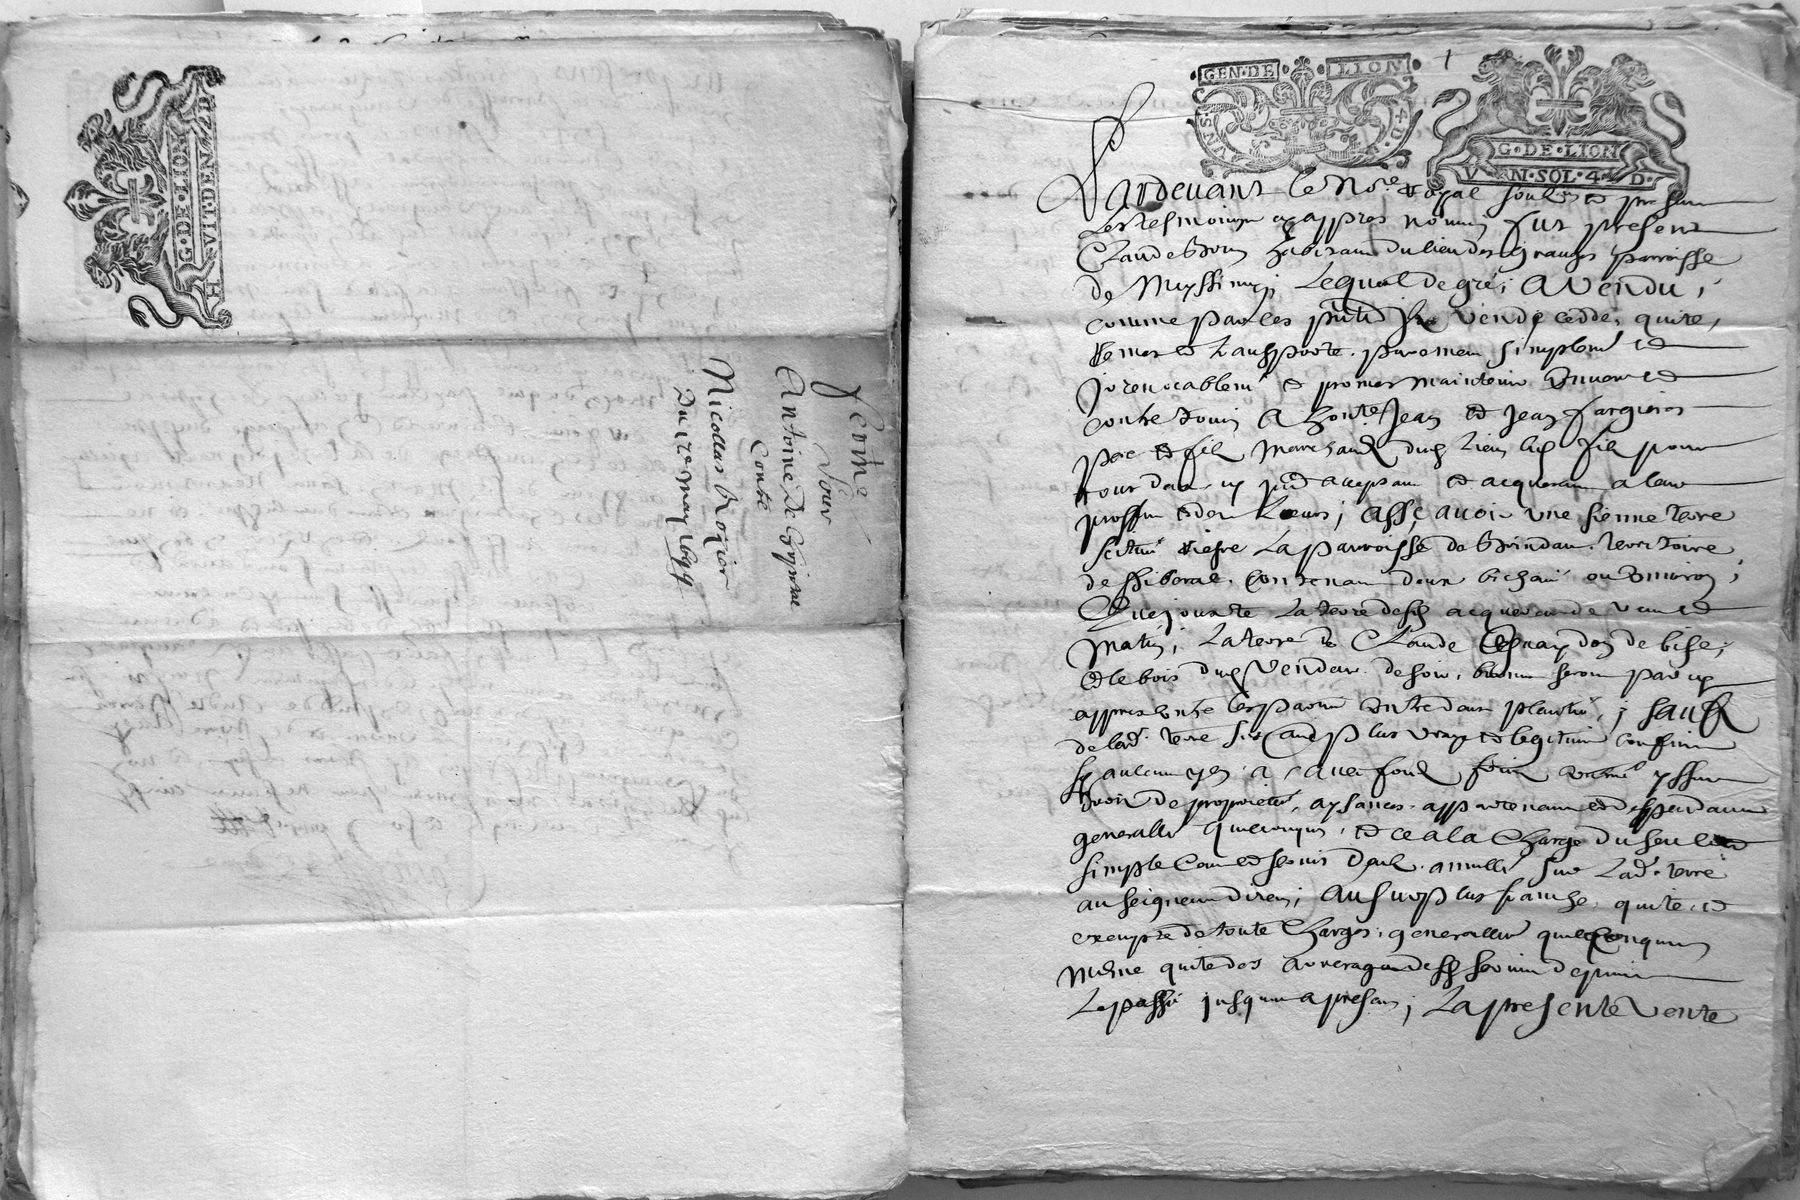 G·DE·LION
HVIT·DEN·ZD
Ferme
Pour
Antoine De Epinac
Conte
Nicollas Brozier
Du 17e may 1694
GEN·DE LION
VN·S· 4·D·
G·DE·LION
VN·SOL·4·D·
Pardevant le No.re Royal soubs.né et presens
Les tesmoins cy appres nommés fut present
Claude habitant du lieu des granges parroisse
de Myssimy; Lequel de gré; A Vendu;
comme par les pntes vend, cedde, quite,
remet et transporte purement simplemt et
jrrevocablemt et promet maintenir Envers et
contre touts A hon.te Jean et Jean fargieres
pere et fils marchands dud. lieu led. fils pour
tous deux cy pnt acceptant et acquerant a leur
proffit et des leurs; Assçavoir une sienne terre
scituée riesre La parroisse de Brindas territoire
de contenant deux bichées ou Environ;
Que jouxte La terre desd. acquereurs de vent et
matin; La terre de Claude de bise;
et le bois dud. Vendeur de soir,
appres entre les parties; Sauf
de lad. terre ses autres plus vrays et legitimes confins
sy aucuns yen a, avec fonds, fruits, yssues
droits de proprieté, aysances, appartenances et deppendances
generalles quelconques, et ce a la Charge du seul et
simple Cens et servis Deub annuellemt sur Lad. terre
au seigneur direct; Au surplus franche, quite, et
exempte de toute Charges, generalles quelconques
Même quite des arrerages desd. servis de
Le passé jusques a present; La presente Vente